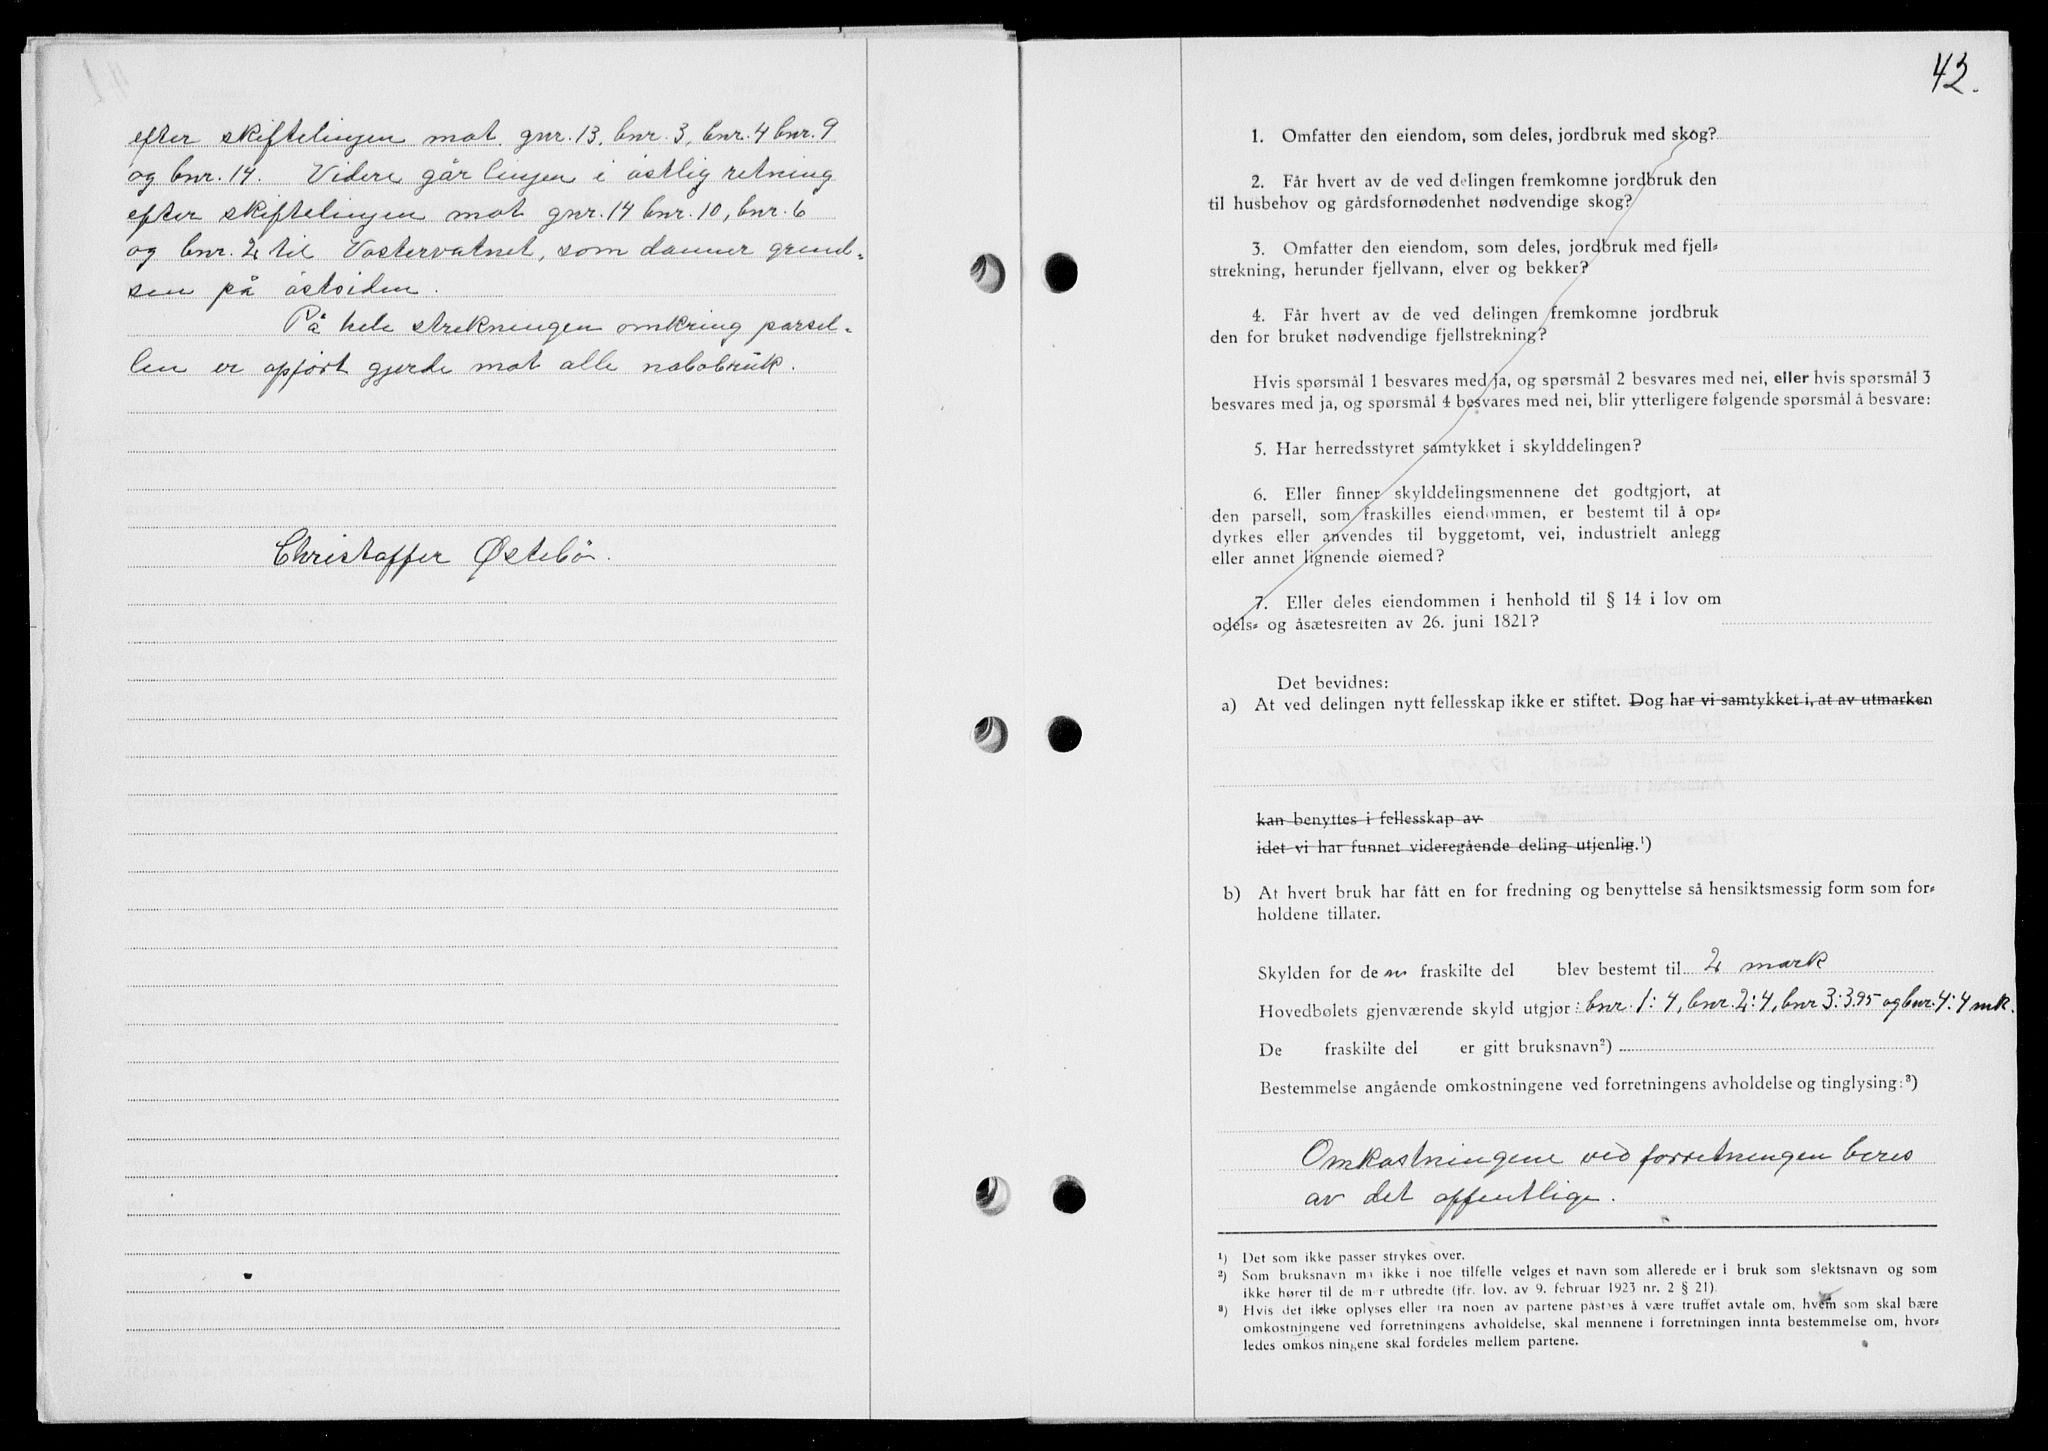 efter skiftelinjen mot gnr. 13, bnr. 3, bnr. 4 bnr. 9
og bnr. 14. Videre går linjen i østlig retning
efter skiftelinjen mot gnr. 14 bnr. 10, bnr. 6
og bnr. 2 til Vostervatnet, som danner grend-
sen på østsiden.
På hele strekningen omkring parsel-
len er opført gjerde mot alle nabobruk.
Christoffer Østebø.
42.
1. Omfatter den eiendom, som deles, jordbruk med skog?
2. Får hvert av de ved delingen fremkomne jordbruk den
til husbehov og gårdsfornødenhet nødvendige skog?
3. Omfatter den eiendom, som deles, jordbruk med fjell-
strekning, herunder fjellvann, elver og bekker?
4. Får hvert av de ved delingen fremkomne jordbruk
den for bruket nødvendige fjellstrekning?
Hvis spørsmål 1 besvares med ja, og spørsmål 2 besvares med nei, eller hvis spørsmål 3
besvares med ja, og spørsmål 4 besvares med nei, blir ytterligere følgende spørsmål å besvare:
5. Har herredsstyret samtykket i skylddelingen?
6. Eller finner skylddelingsmennene det godtgjort, at
den parsell, som fraskilles eiendommen, er bestemt til å op-
dyrkes eller anvendes til byggetomt, vei, industrielt anlegg
eller annet lignende øiemed?
7. Eller deles eiendommen i henhold til § 14 i lov om
odels- og åsætesretten av 26. juni 1821?
Det bevidnes:
a) At ved delingen nytt fellesskap ikke er stiftet. Dog har vi samtykket i, at av utmarken
kan benyttes i fellesskap av
idet vi har funnet videregående deling utjenlig.¹)
b) At hvert bruk har fått en for fredning og benyttelse så hensiktsmessig form som for-
holdene tillater.
Skylden for den fraskilte del blev bestemt til 2 mark
Hovedbølets gjenværende skyld utgjør: bnr. 1: 4, bnr. 2: 4, bnr 3: 3.95 og bnr. 4: 4 mk.
De fraskilte del er gitt bruksnavn²)
Bestemmelse angående omkostningene ved forretningens avholdelse og tinglysing:³)
Omkostningene ved forretningen beres
av det offentlige.
¹) Det som ikke passer strykes over.
²) Som bruksnavn må ikke i noe tilfelle velges et navn som allerede er i bruk som slektsnavn og som
ikke hører til de mer utbredte (jfr. lov. av 9. februar 1923 nr. 2 § 21).
³) Hvis det ikke oplyses eller fra noen av partene påstås å være truffet avtale om, hvem som skal bære
omkostningene ved forretningens avholdelse, skal mennene i forretningen innta bestemmelse om, hvor-
ledes omkostningene skal fordeles mellem partene.